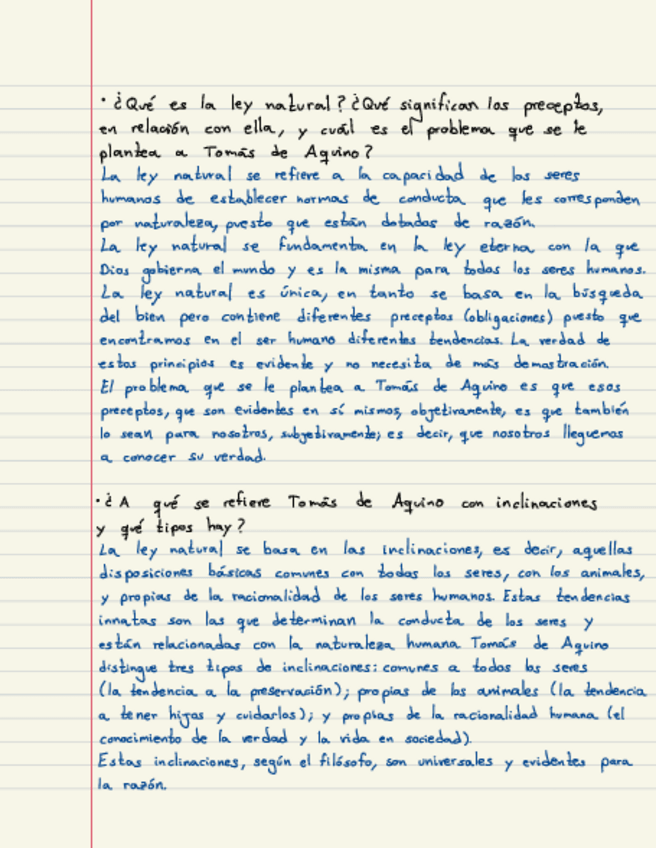 · ¿Qué es la ley natural? ¿Qué significan los preceptos,
en relación con ella, y cuál es el problema que se le
plantea a Tomás de Aquino?
La ley natural se refiere a la capacidad de los seres
humanos de establecer normas de conducta que les corresponden
por naturaleza, puesto que están dotados de razón.
La ley natural se fundamenta en la ley eterna con la que
Dios gobierna el mundo y es la misma para todos los seres humanos.
La ley natural es única, en tanto se basa en la búsqueda
del bien pero contiene diferentes preceptos (obligaciones) puesto que
encontramos en el ser humano diferentes tendencias. La verdad de
estos principios es evidente y no necesita de más demostración.
El problema que se le plantea a Tomás de Aquino es que esos
preceptos, que son evidentes en sí mismos, objetivamente, es que también
lo sean para nosotros, subjetivamente; es decir, que nosotros lleguemos
a conocer su verdad.
· ¿A qué se refiere Tomás de Aquino con inclinaciones
y qué tipos hay?
La ley natural se basa en las inclinaciones, es decir, aquellas
disposiciones básicas comunes con todos los seres, con los animales,
y propias de la racionalidad de los seres humanos. Estas tendencias
innatas son las que determinan la conducta de los seres y
están relacionadas con la naturaleza humana Tomás de Aquino
distingue tres tipos de inclinaciones: comunes a todos los seres
(la tendencia a la preservación); propias de los animales (la tendencia
a tener hijos y cuidarlos); y propias de la racionalidad humana (el
conocimiento de la verdad y la vida en sociedad).
Estas inclinaciones, según el filósofo, son universales y evidentes para
la razón.